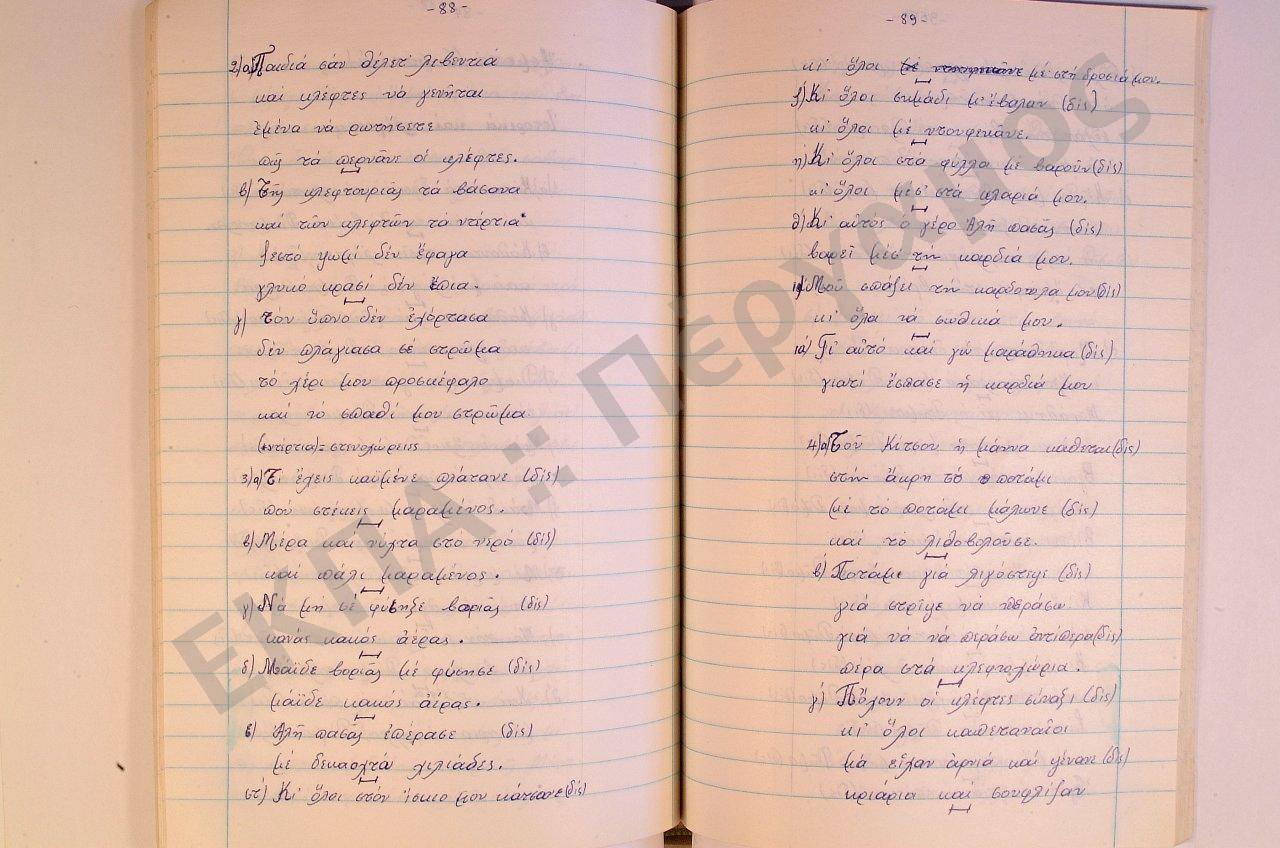 -88-
2)α) Παιδιά σάν θέλετ' λεβεντιά
καί κλέφτες νά γενῆται
ἐμένα νά ρωτήσετε
πῶς τα περνᾶνε οἱ κλέφτες.
β) Τῆς κλεφτουριᾶς τά βάσανα
καί τῶν κλεφτῶν τά ντέρτια·
ζεστό ψωμί δέν ἔφαγα
γλυκό κρασί δέν ἔπια.
γ) τον ὕπνο δέν ἐχόρτασα
δέν πλάγιασα σέ στρῶμα
τό χέρι μου προσκέφαλο
καί τό σπαθί μου στρῶμα
(ντέρτια)= στενοχώρειες
3)α) Τί ἔχεις καϋμένε πλάτανε (δίς)
πού στέκεις μαραμένος.
β) Μέρα καί νύχτα στό νερό (δίς)
καί πάλι μαραμένος.
γ) Νά μή σέ φύσηξε βοριᾶς (δίς)
κανάς κακός ἀέρας.
δ) Μάϊδε βοριᾶς μέ φύσησε (δίς)
μάϊδε κακός ἀέρας.
ε) Ἀλῆ πασᾶς ἐπέρασε (δίς)
μέ δεκαοχτώ χιλιάδες.
στ) Κι' ὅλοι στόν ἴσκιο μου κάτσανε (δίς)
-89-
κι' ὅλοι μέ στή δροσιά μου.
ζ) Κι' ὅλοι σημάδι μ' ἔβαλαν (δίς)
κι' ὅλοι μέ ντουφεκᾶνε.
η) Κι' ὅλοι στά φύλλα μέ βαροῦν (δίς)
κι' ὅλοι μές' στά κλαριά μου.
θ) Κι' αὐτός ὁ γέρο Ἀλῆ πασᾶς (δίς)
βαρεῖ μέσ' τήν καρδιά μου.
ι) Μοῦ σπάζει τήν καρδούλα μου (δίς)
κι' ὅλα τά σωθικά μου.
ια) Γι' αὐτό καί γώ μαράθηκα (δίς)
γιατί ἔσπασε ἡ καρδιά μου
4)α) Τοῦ Κίτσου ἡ μάννα κάθεται (δίς)
στήν ἄκρη τό ποτάμι
μέ τό ποτάμι μάλωνε (δίς)
καί τό λιθοβολοῦσε.
β) Ποτάμι γιά λιγόστεψε (δίς)
γιά στρίψε νά περάσω
γιά νά νά περάσω ἀντίπερα (δίς)
πέρα στά κλεφτοχώρια.
γ) Πὄχουν οἱ κλέφτες σύναξι (δίς)
κι' ὅλοι καπεταναῖοι
μά εἶχαν ἀρνιά καί ψένανε (δίς)
κριάρια καί σουφλίζαν
ΕΚΠΑ :: Πέργαμος